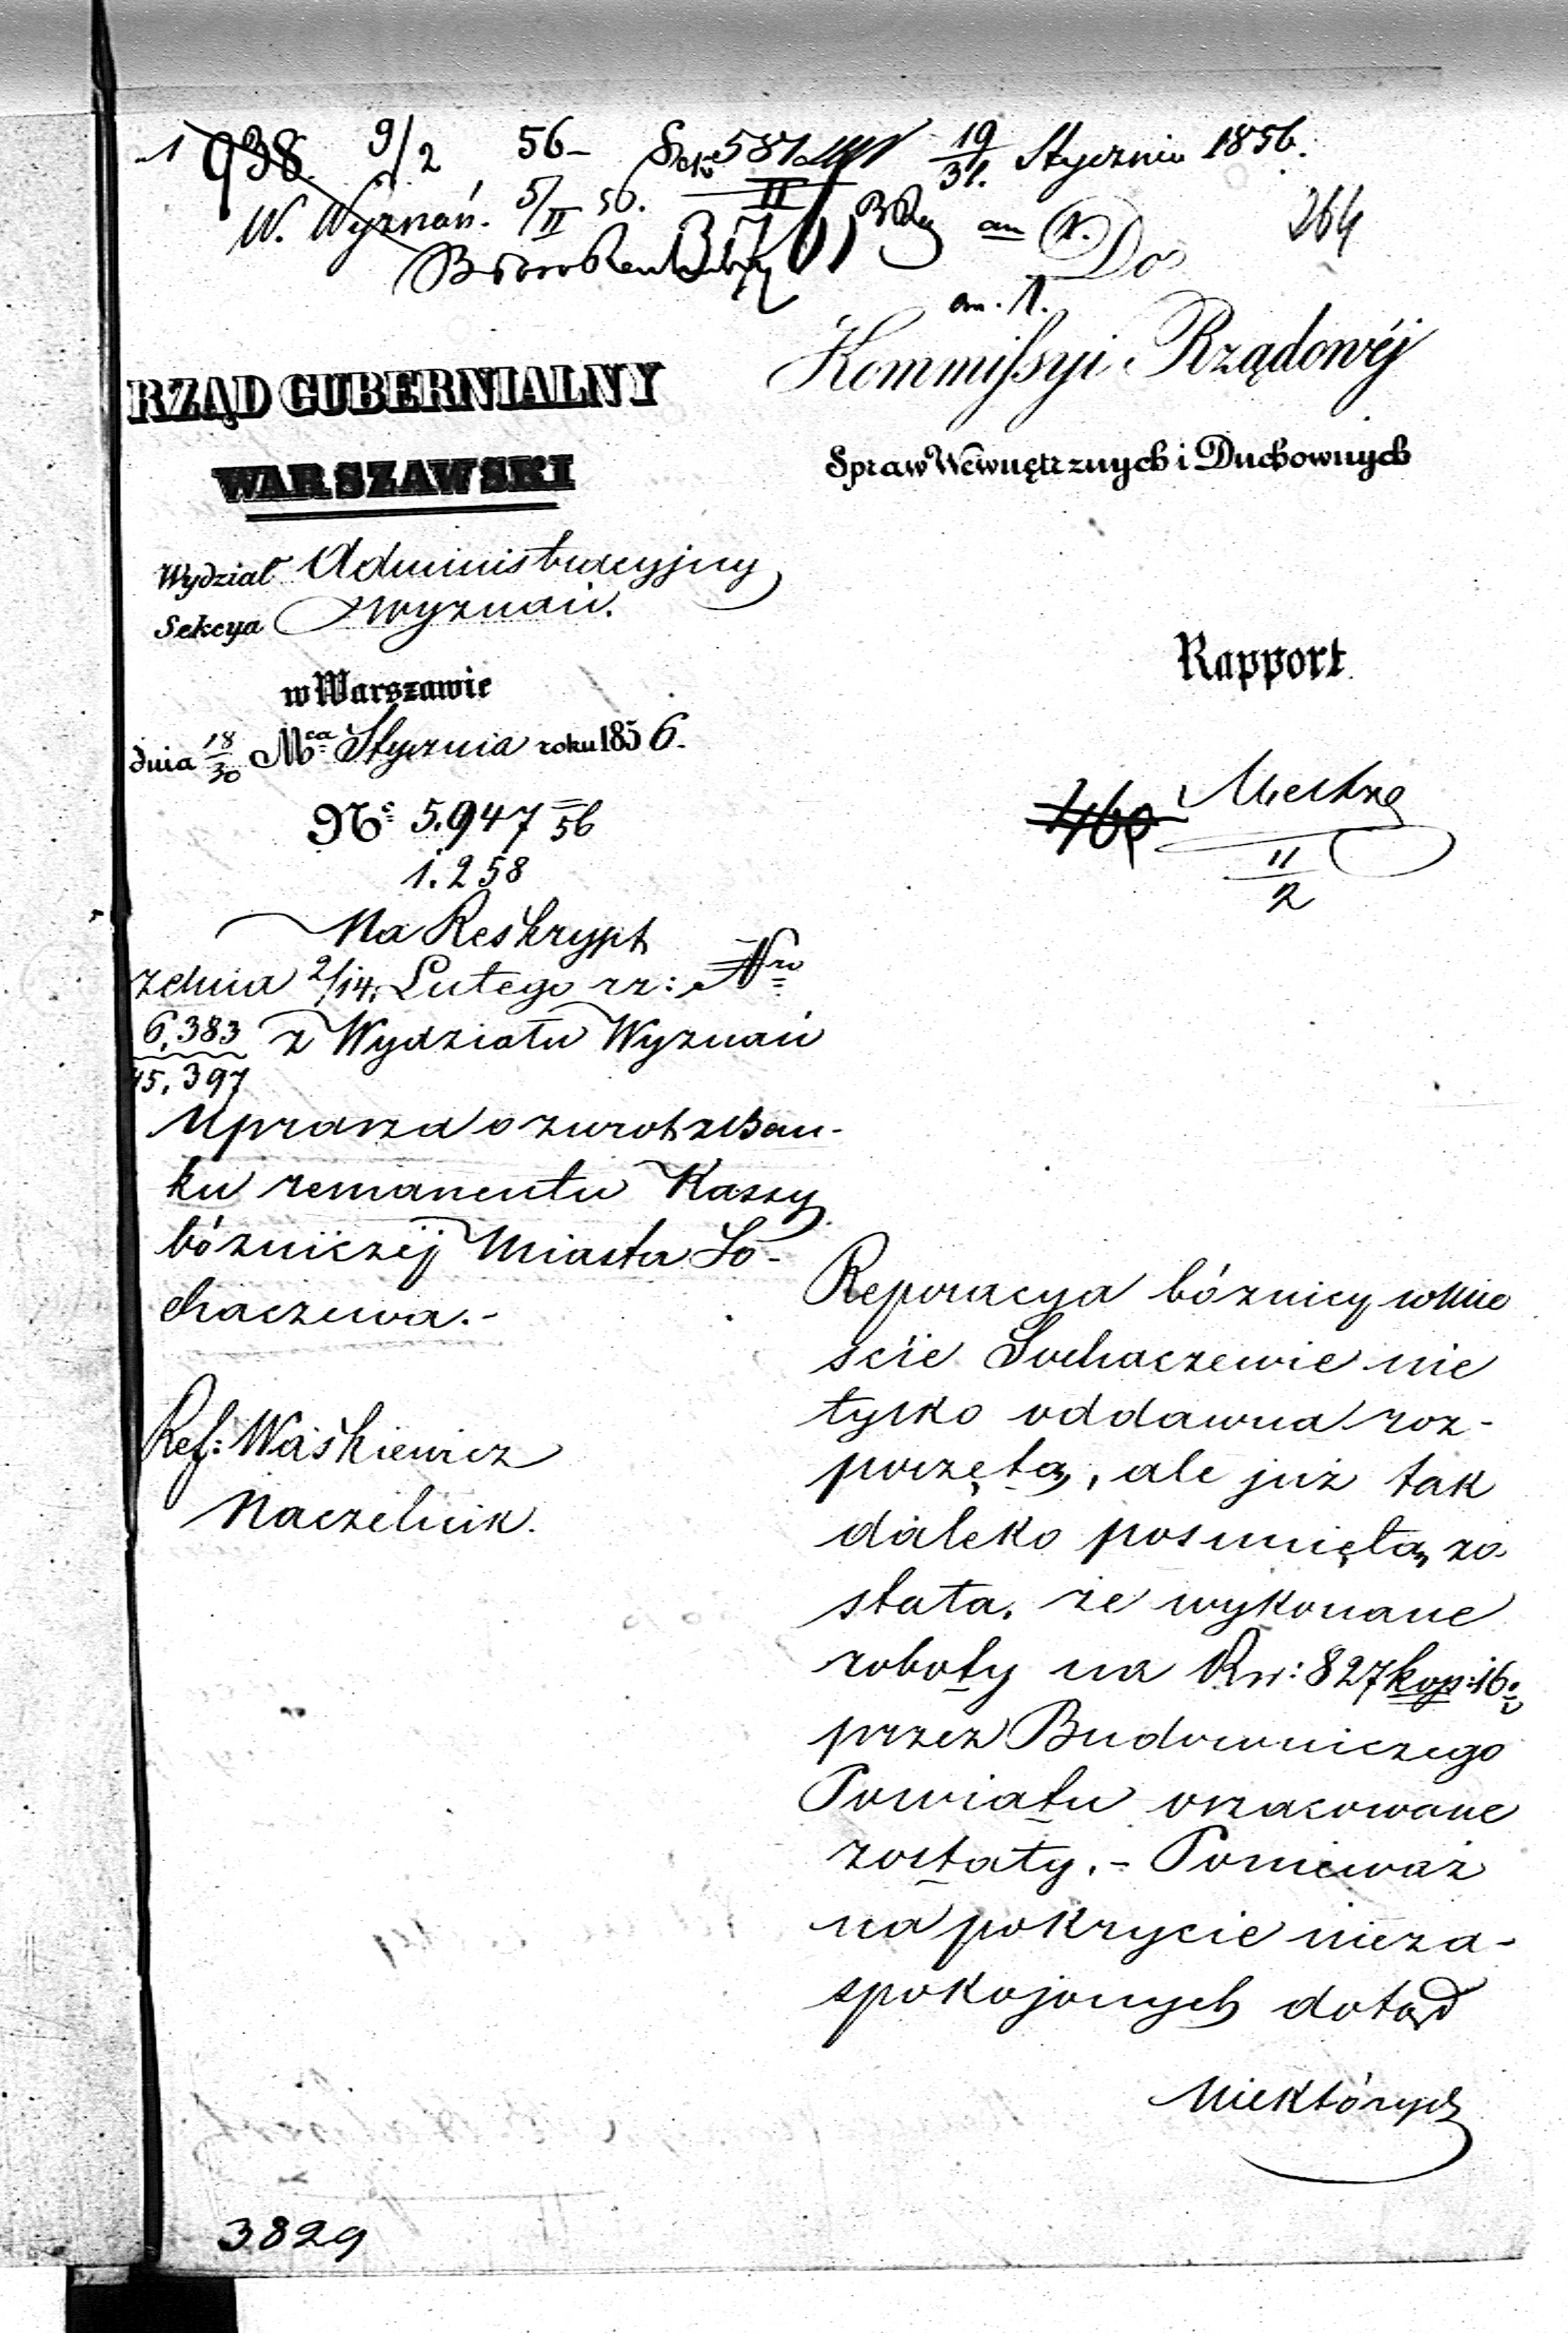 1 938. 9/2 56- 581 19/31. Stycznia 1856.
W. Wyznań. 5/II 56. II an 264
Do
an. 1.
Kommissyi Rządowéj
Spraw Wewnętrznych i Duchownych
RZĄD GUBERNIALNY
WARSZAWSKI
Wydział Administracyjny
Sekcya Wyznań.
w Warszawie
dnia 18/30 Mca Stycznia roku 1856.
Nr 5.947 56
1.258
Rapport
460
11/2
Na Reskrypt
z dnia 2/14. Lutego rz: Nro
6,383 z Wydziału Wyznań
45,397
Uprasza o zwrot z Ban-
ku remanentu Kassy
bóżniczéj Miasta So-
chaczewa.-
Ref: Waśkiewicz
Naczelnik.
Reperacya bóżnicy w Mie
ście Sochaczewie nie
tylko oddawna roz-
poczętą, ale już tak
daleko posuniętą zo
stała, że wykonane
roboty na Rsr: 827 kop: 16
przez Budowniczego
Powiatu oszacowane
zostały.- Ponieważ
na pokrycie nieza-
spokojonych dotąd
niektórych
3829